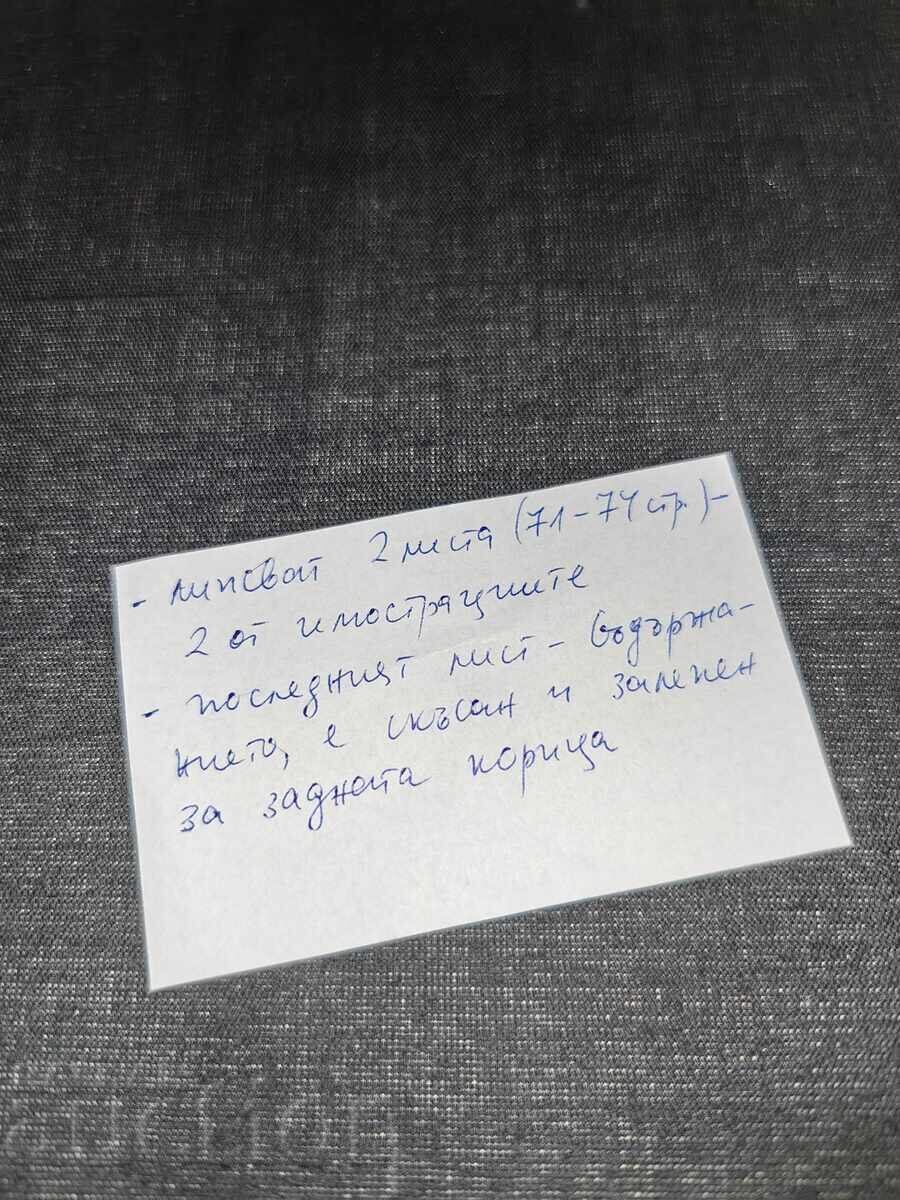 - липсват 2 листа (71-74 стр.) -
2 от илюстрациите
- последният лист - Съдържа-
нието, е скъсан и залепен
за задната корица